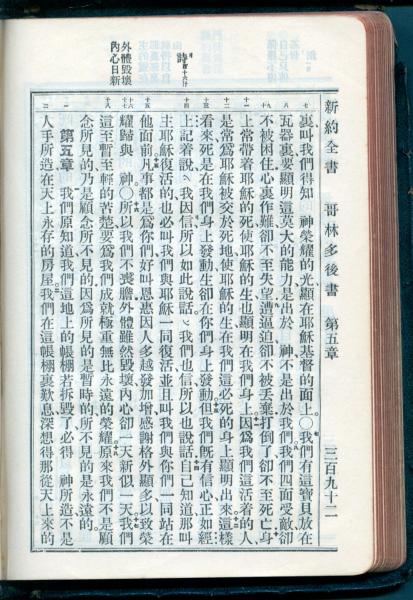 新約全書 哥林多後書 第五章 三百九十二
裏叫我們得知 神榮耀的光顯在耶穌基督的面上。〇我們有這寶貝放在
瓦器裏要顯明這莫大的能力是出於 神不是出於我們我們四面受敵卻
不被困住心裏作難卻不至失望遭逼迫卻不被丟棄打倒了卻不至死亡身
上常帶着耶穌的死使耶穌的生也顯明在我們身上因爲我們這活着的人、
是常爲耶穌被交於死地使耶穌的生在我們這必死的身上顯明出來這樣
看來死是在我們身上發動生卻在你們身上發動但我們旣有信心正如經
上記着說、我因信所以如此說話、我們也信所以也說話自己知道那叫
主耶穌復活的也必叫我們與耶穌一同復活並且叫我們與你們一同站在
他面前凡事都是爲你們好叫恩惠因人多越發加增感謝格外顯多以致榮
耀歸與 神〇所以我們不喪膽外體雖然毀壞內心卻一天新似一天我們
這至暫至輕的苦楚要爲我們成就極重無比永遠的榮耀原來我們不是顧
念所見的乃是顧念所不見的因爲所見的是暫時的所不見的是永遠的。
第五章 我們原知道我們這地上的帳棚若拆毀了必得 神所造不是
人手所造在天上永存的房屋我們在這帳棚裏歎息深想得那從天上來的
八
九
十
十一
十二
十三
十四
十五
十六
十七
十八
一
二
外體毀壞
內心日新